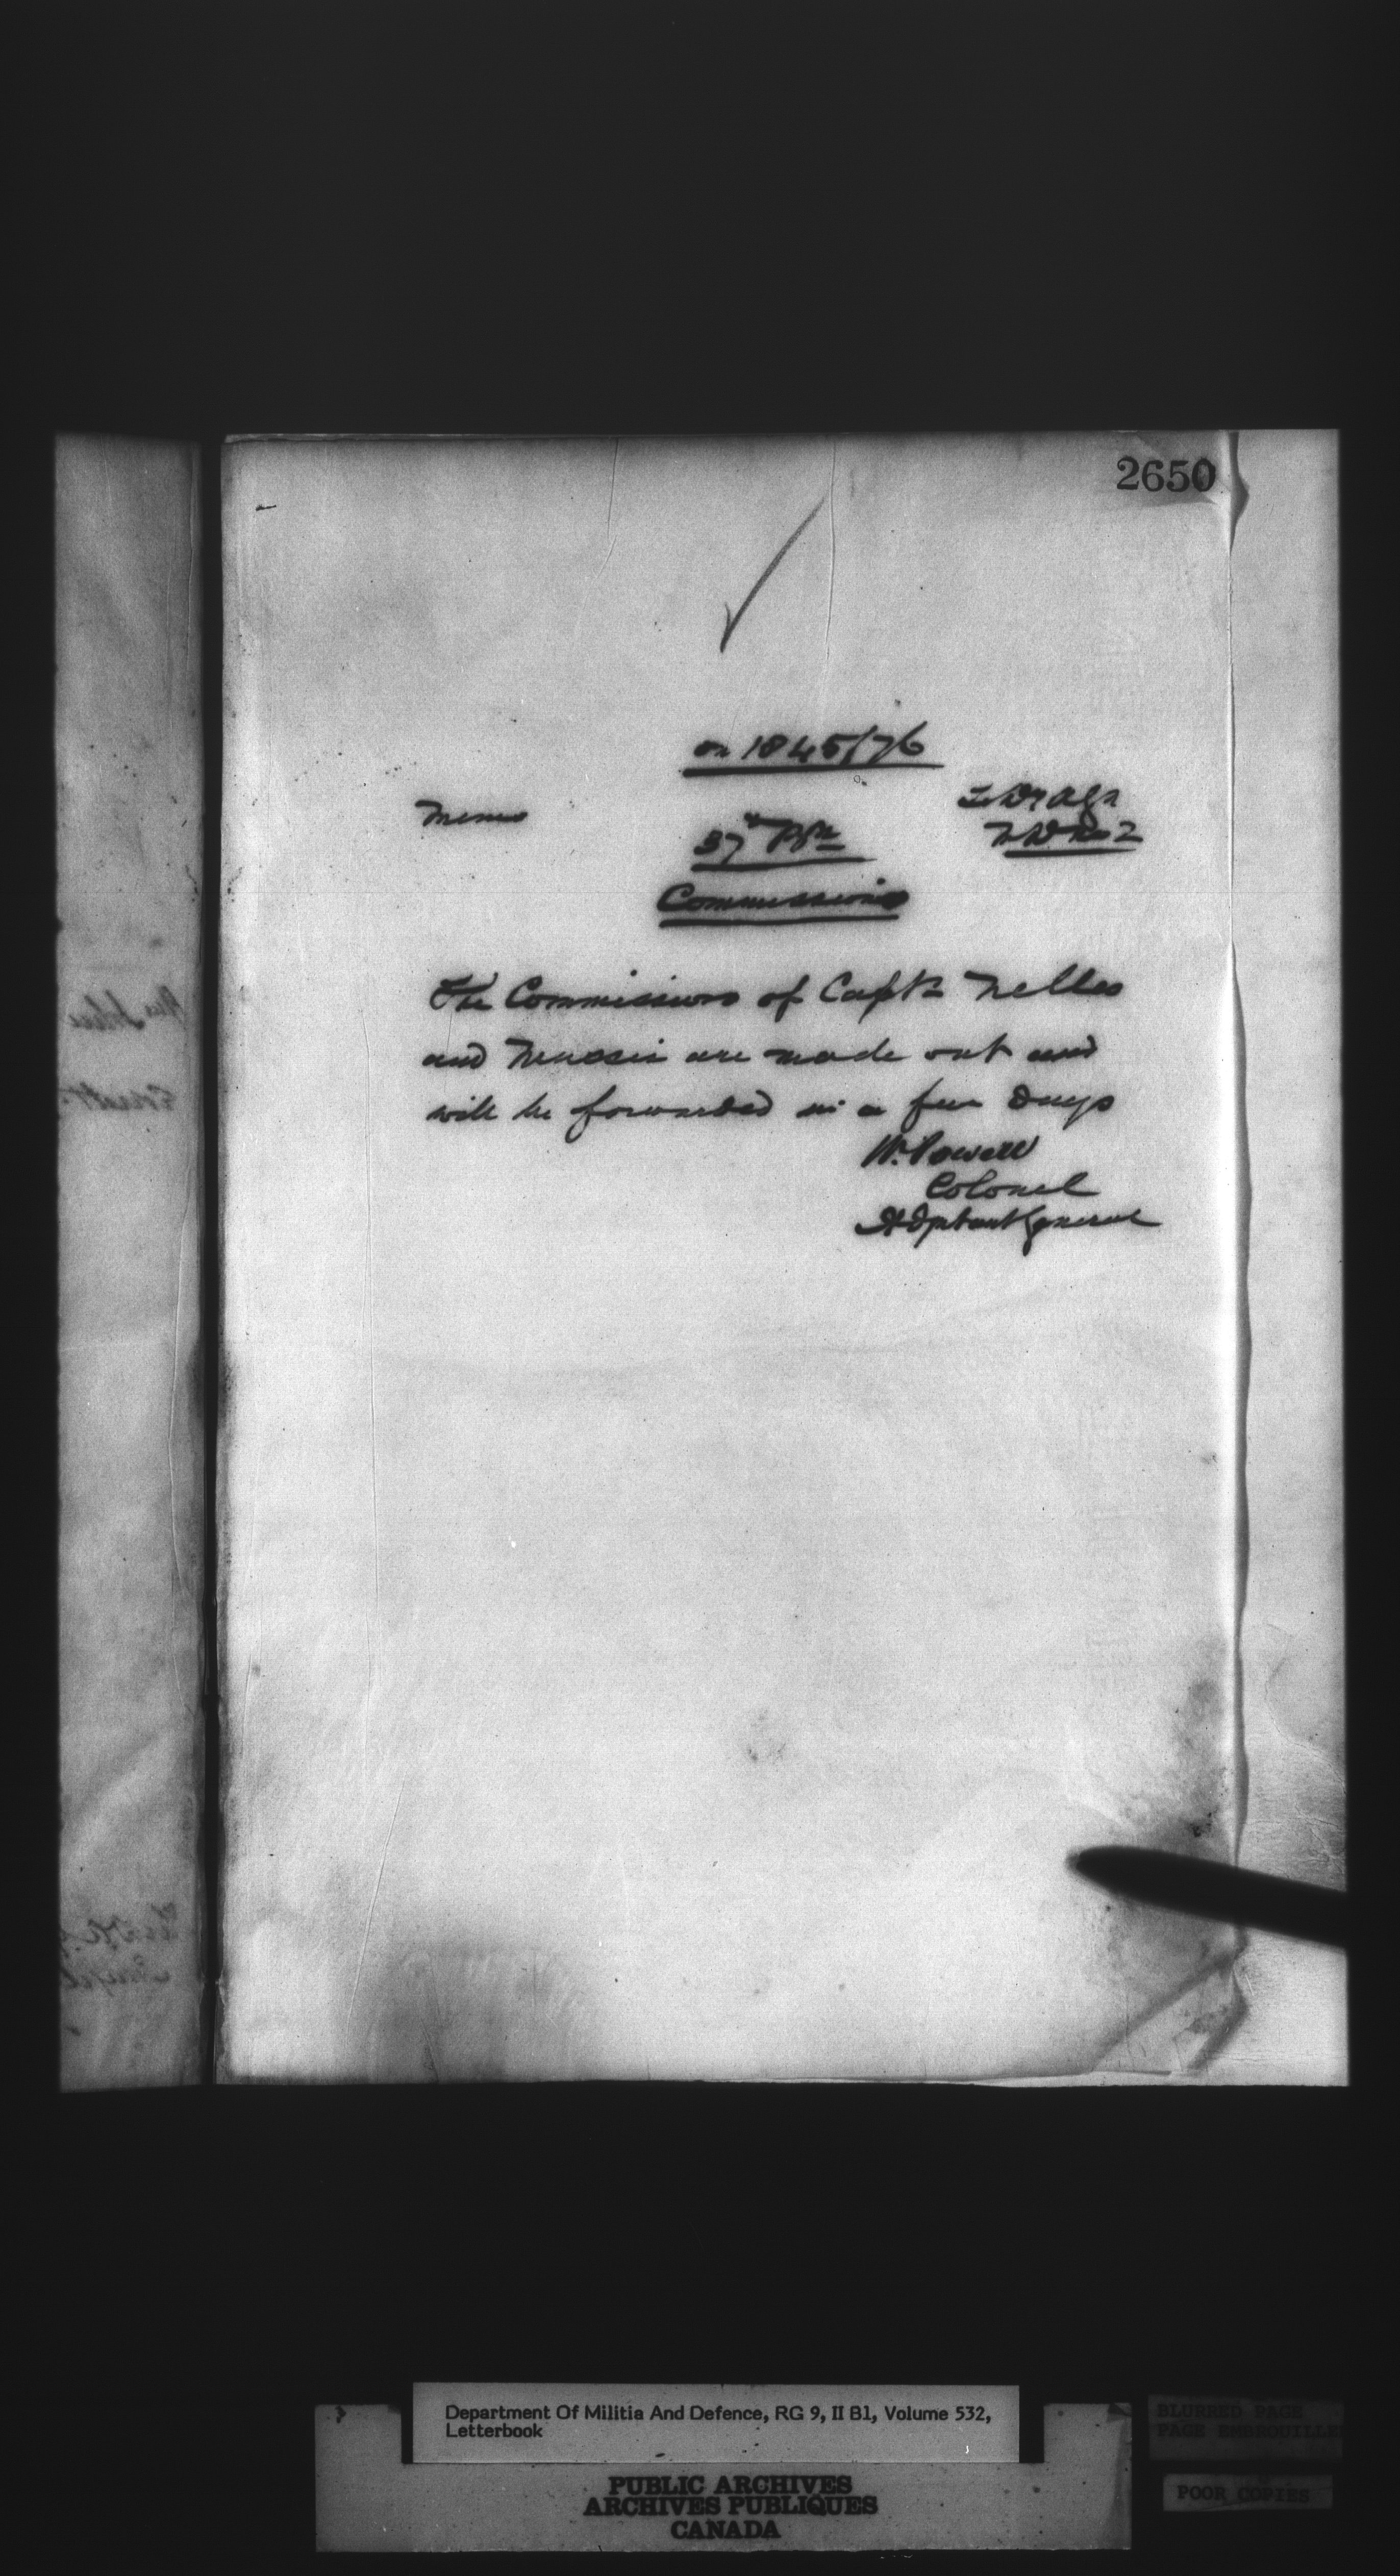 2650
on 1845/76
Memo
To D A G
M D No 2
37th Bn
Commissions
The Commissions of Capts Nelles
and are made out and
will be forwarded in a few days
W. Powell
Colonel
Adjutant General
Department Of Militia And Defence, RG 9, II B1, Volume 532,
Letterbook
PUBLIC ARCHIVES
ARCHIVES PUBLIQUES
CANADA
BLURRED PAGE
PAGE EMBROUILLE
POOR COPIES